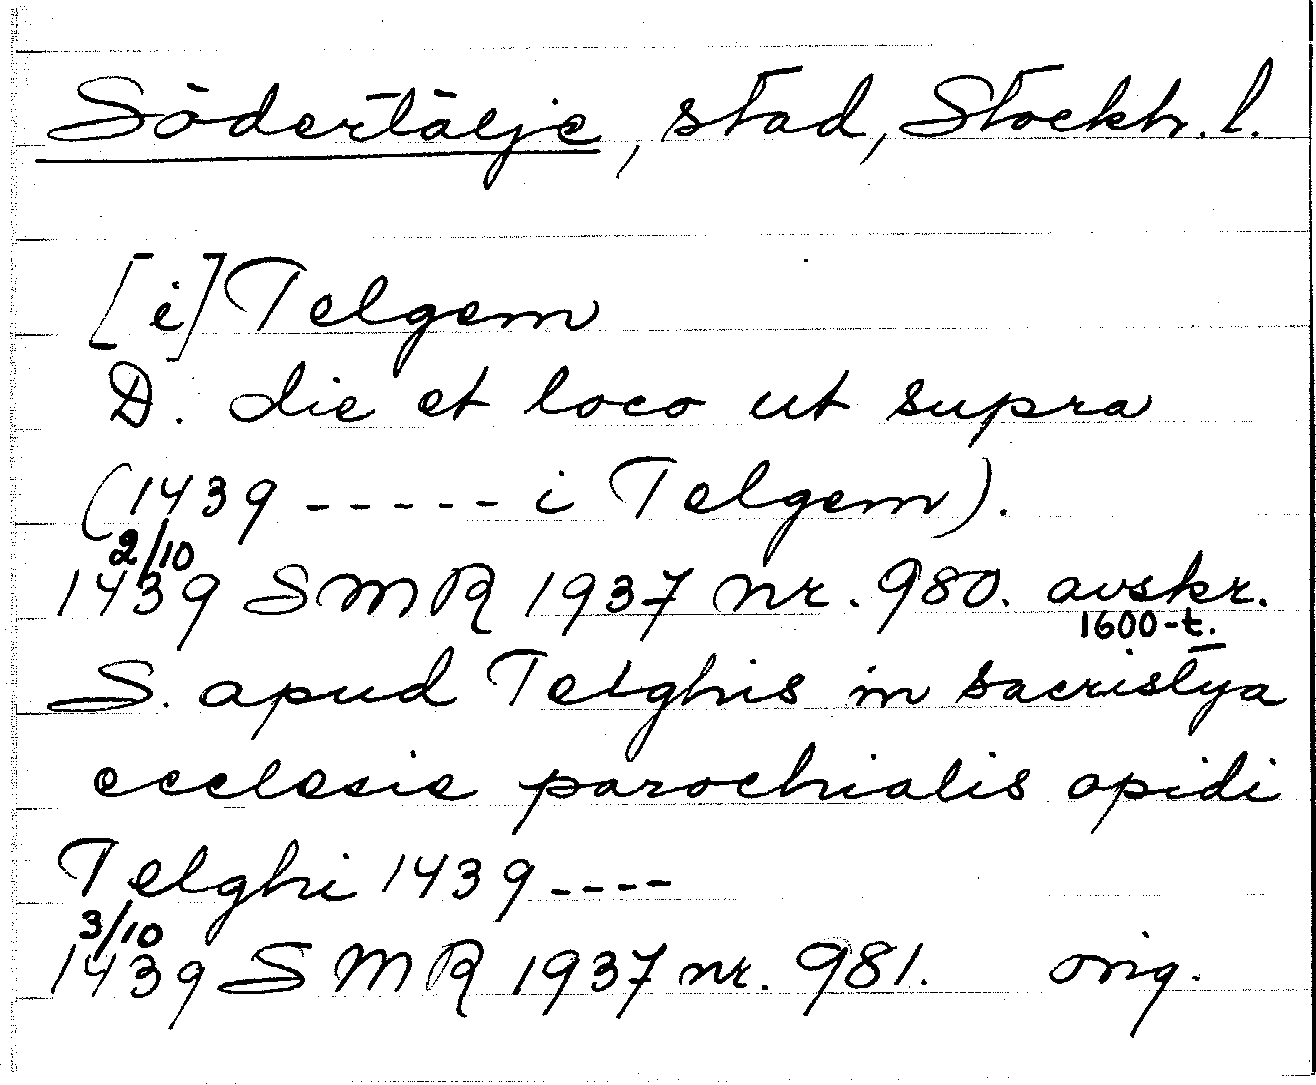 Södertälje, stad, Stockh. l.
[i] Telgem
D. die et loco ut supra
(1439 ----- i Telgem).
2/10
1439 SMR 1937 nr. 980. avskr.
1600-t.
S. apud Telghis in sacristya
ecclesie parochialis opidi
Telghi 1439 ----
3/10
1439 SMR 1937 nr. 981. orig.